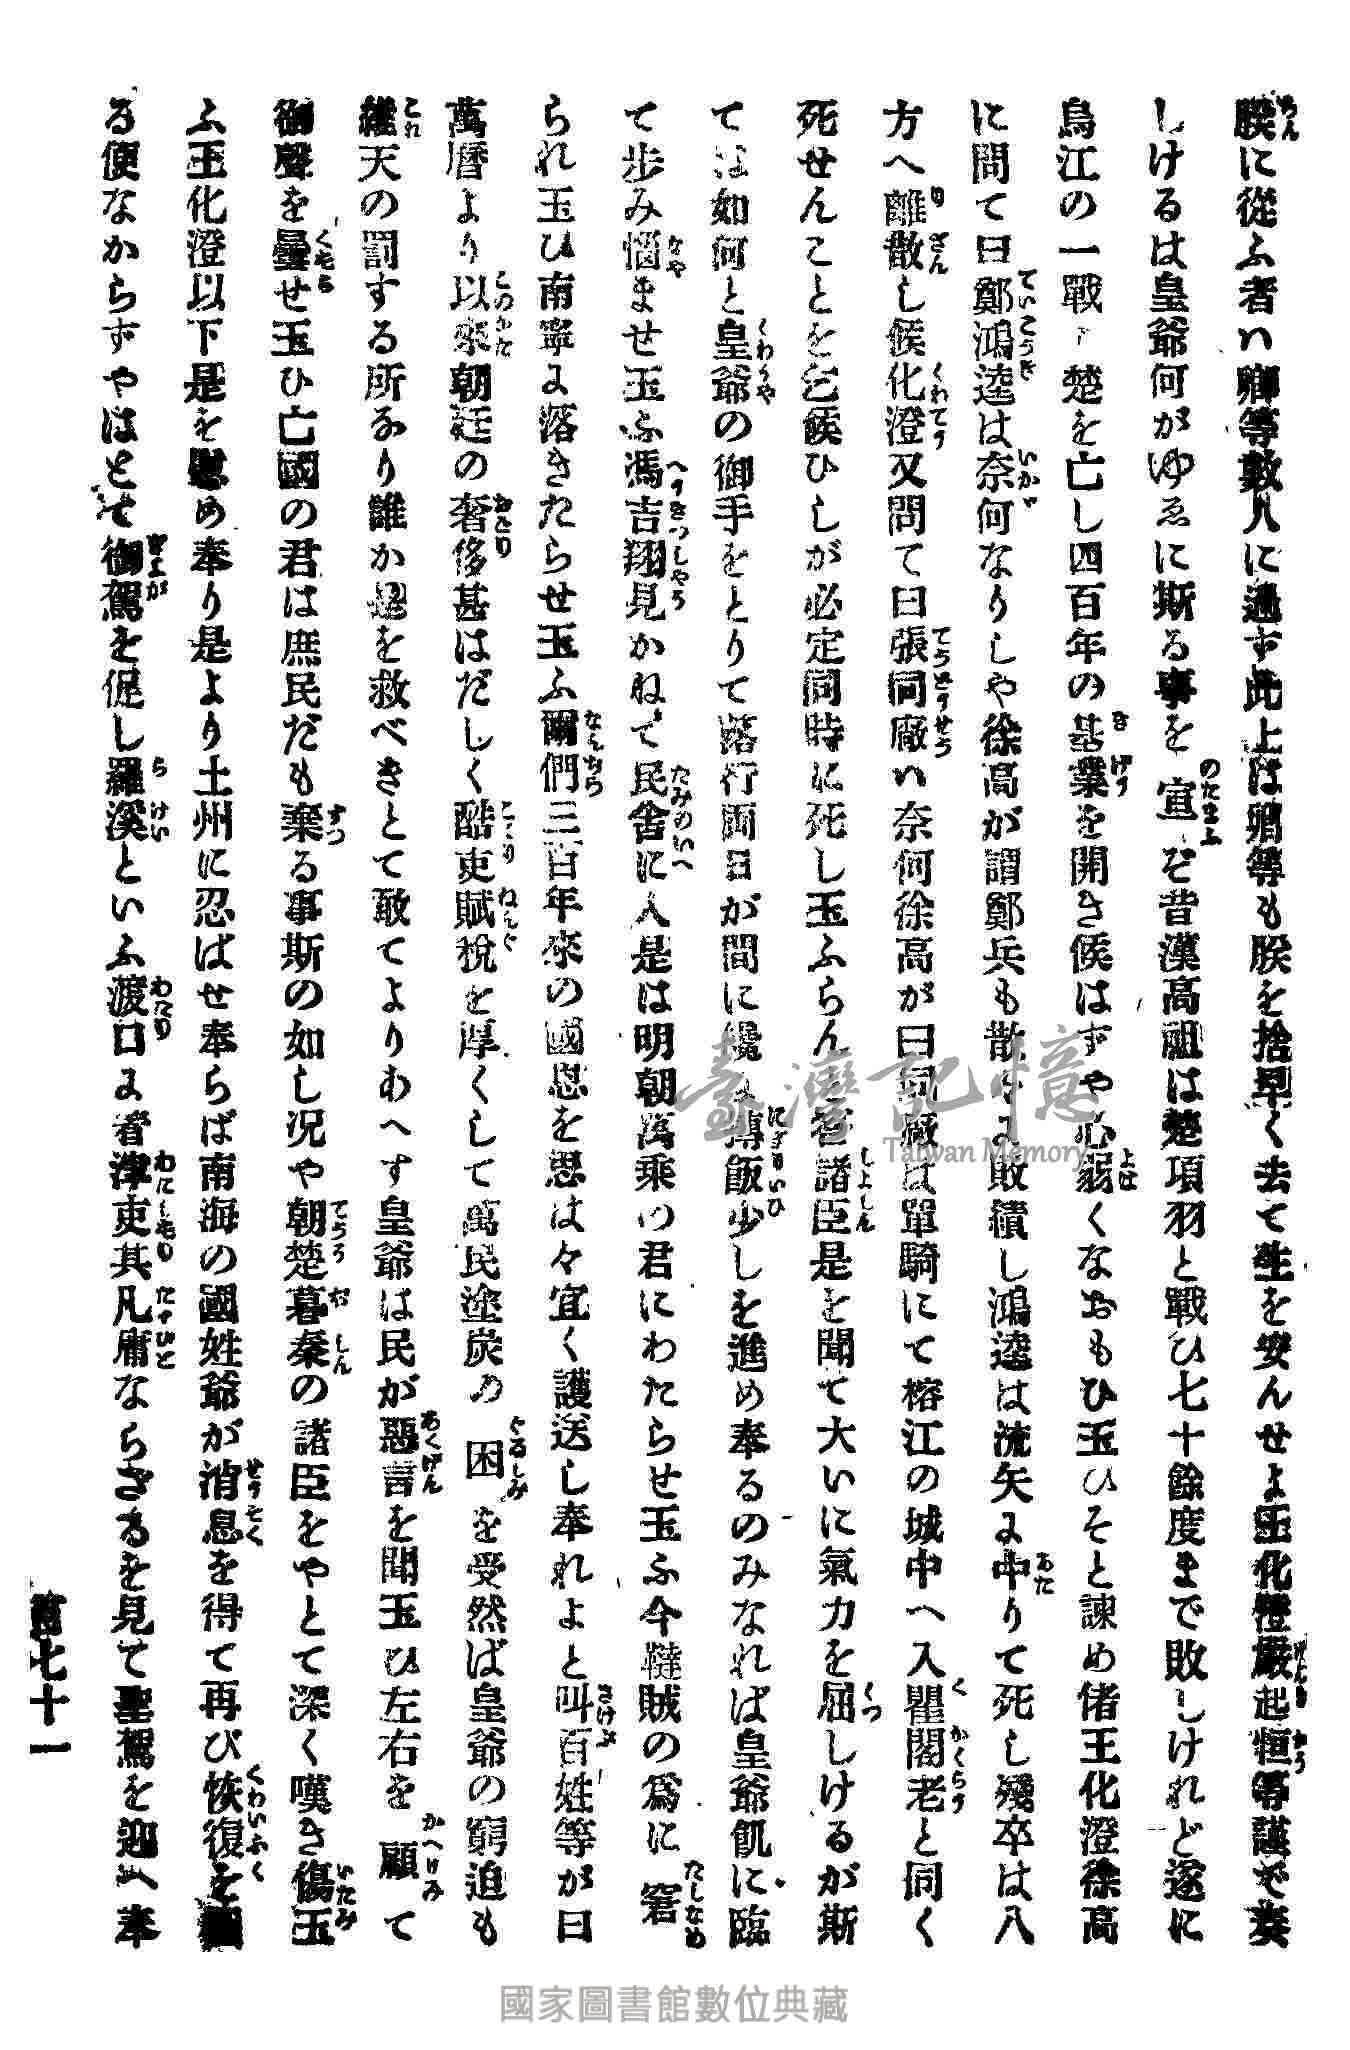 朕に從ふ者ハ卿等數人に過ず此上は卿等も朕を捨早く去て生を安んせよ王化澄嚴起恒等謹で奏
しけるは皇爺何がゆゑに斯る事を宣ぞ昔漢高祖は楚項羽と戰ひ七十餘度まで敗しけれど遂に
烏江の一戰に楚を亡し四百年の基業を開き候はずや心弱くなおもひ玉ひそと諫め偖王化澄徐高
に問て曰鄭鴻逵は奈何なりしや徐高が謂鄭兵も散々に敗績し鴻逵は流矢に中りて死し殘卒は八
方へ離散し候化澄又問て曰張同廠ハ奈何徐高が曰同廠は單騎にて榕江の城中へ入瞿閣老と同く
死せんことを乞候ひしが必定同時に死し玉ふらんと答諸臣是を聞て大いに氣力を屈しけるが斯
ては如何と皇爺の御手をとりて落行両日が間に纔に摶飯少しを進め奉るのみなれば皇爺飢に臨
て步み惱ませ玉ふ馮吉翔見かねて民舍に入是は明朝萬乘の君にわたらせ玉ふ今韃賊の爲に窘
られ玉ひ南寧に落きたらせ玉ふ爾們三百年來の國恩を思は々宜く護送し奉れよと叫百姓等が曰
萬曆より以來朝廷の奢侈甚はだしく酷吏賦稅を厚くして萬民塗炭の困を受然ば皇爺の窮迫も
維天の罰する所なり誰か是を救べきとて敢てよりあへす皇爺は民が惡言を聞玉ひ左右を顧て
御聲を曇せ玉ひ亡國の君は庶民だも棄る事斯の如し況や朝楚暮秦の諸臣をやとて深く嘆き傷玉
ふ王化澄以下是を慰め奉り是より土州に忍ばせ奉らば南海の國姓爺が消息を得て再び恢復を圖
る便なからずやはとて御駕を促し羅溪といふ渡口に著津吏其凡庸ならざるを見て聖駕を迎へ奉
百七十一
臺灣記憶
Taiwan Memory
國家圖書館數位典藏